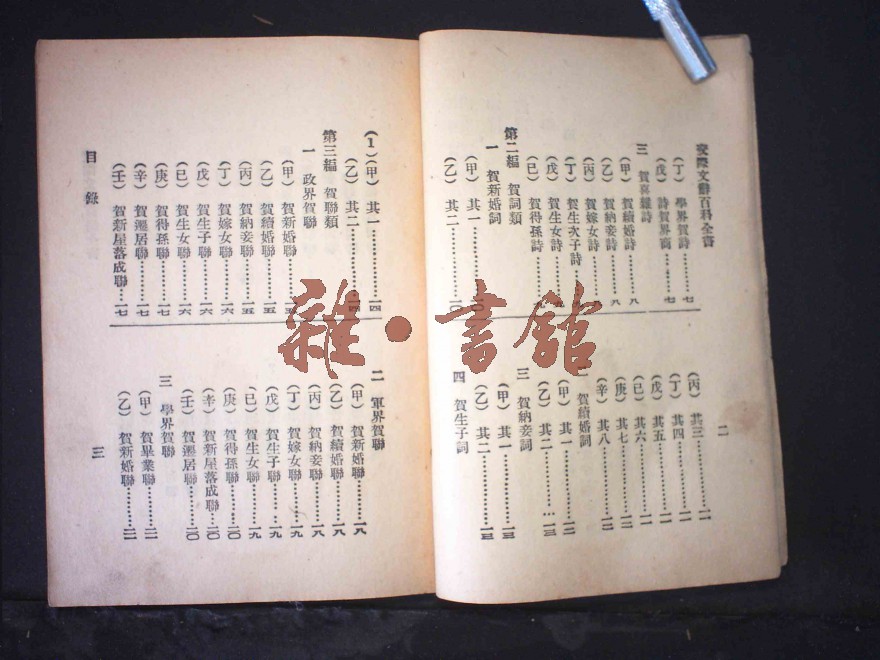 交際文辭百科全書
(丁) 學界賀詩………七
(戊) 詩賀界商………七
三 賀喜雜詩
(甲) 賀續婚詩………八
(乙) 賀納妾詩………八
(丙) 賀嫁女詩
(丁) 賀生次子詩
(戊) 賀生女詩………九
(已) 賀得孫詩
第二編 賀詞類
一 賀新婚詞
(甲) 其一………
(乙) 其二………
(丙) 其三………一一
(丁) 其四………一一
(戊) 其五………一一
(已) 其六………一一
(庚) 其七………一二
(辛) 其八………一二
賀續婚詞
(甲) 其一………一二
(乙) 其二………一三
三 賀納妾詞
(甲) 其一………一三
(乙) 其二………一三
四 賀生子詞
二
(1)(甲) 其一………一四
(乙) 其二………一四
第三編 賀聯類
一 政界賀聯
(甲) 賀新婚聯………一五
(乙) 賀續婚聯………一五
(丙) 賀納妾聯………一五
(丁) 賀嫁女聯………一六
(戊) 賀生子聯………一六
(已) 賀生女聯………一六
(庚) 賀得孫聯………一七
(辛) 賀遷居聯………一七
(壬) 賀新屋落成聯…一七
二 軍界賀聯
(甲) 賀新婚聯………一八
(乙) 賀續婚聯………一八
(丙) 賀納妾聯………一八
(丁) 賀嫁女聯………一九
(戊) 賀生子聯………一九
(已) 賀生女聯………一九
(庚) 賀得孫聯………二〇
(辛) 賀新屋落成聯…二〇
(壬) 賀遷居聯………二〇
三 學界賀聯
(甲) 賀畢業聯………二一
(乙) 賀新婚聯………二一
目錄
三
雜·書館